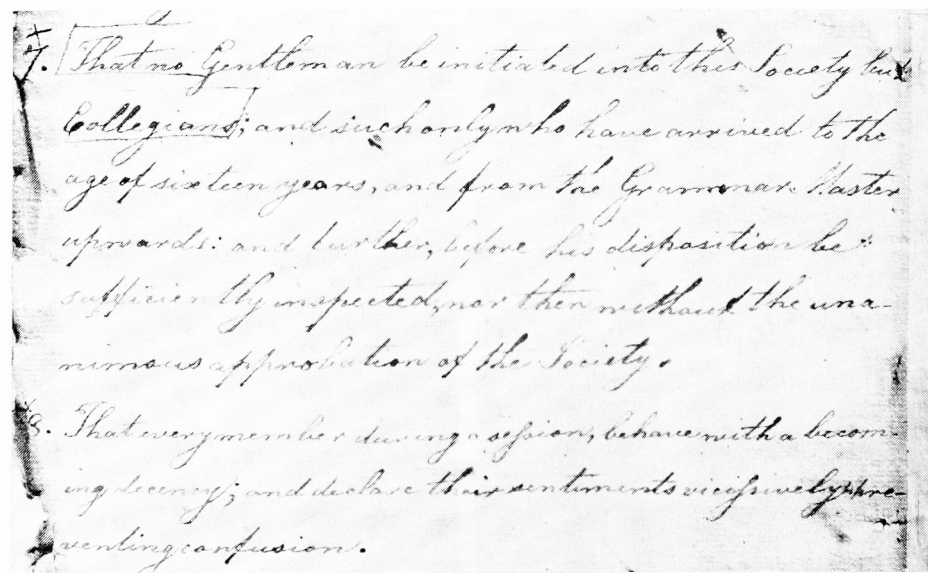 7. That no Gentleman be initiated into this Society but
Collegians; and such only who have arrived to the
age of sixteen years, and from the Grammar Master
upwards: and further, before his disposition be
sufficiently inspected, nor then without the una-
nimous approbation of the Society.
8. That every member during a session, behave with a becom-
ing decency; and declare their sentiments vicissively pre-
venting confusion.